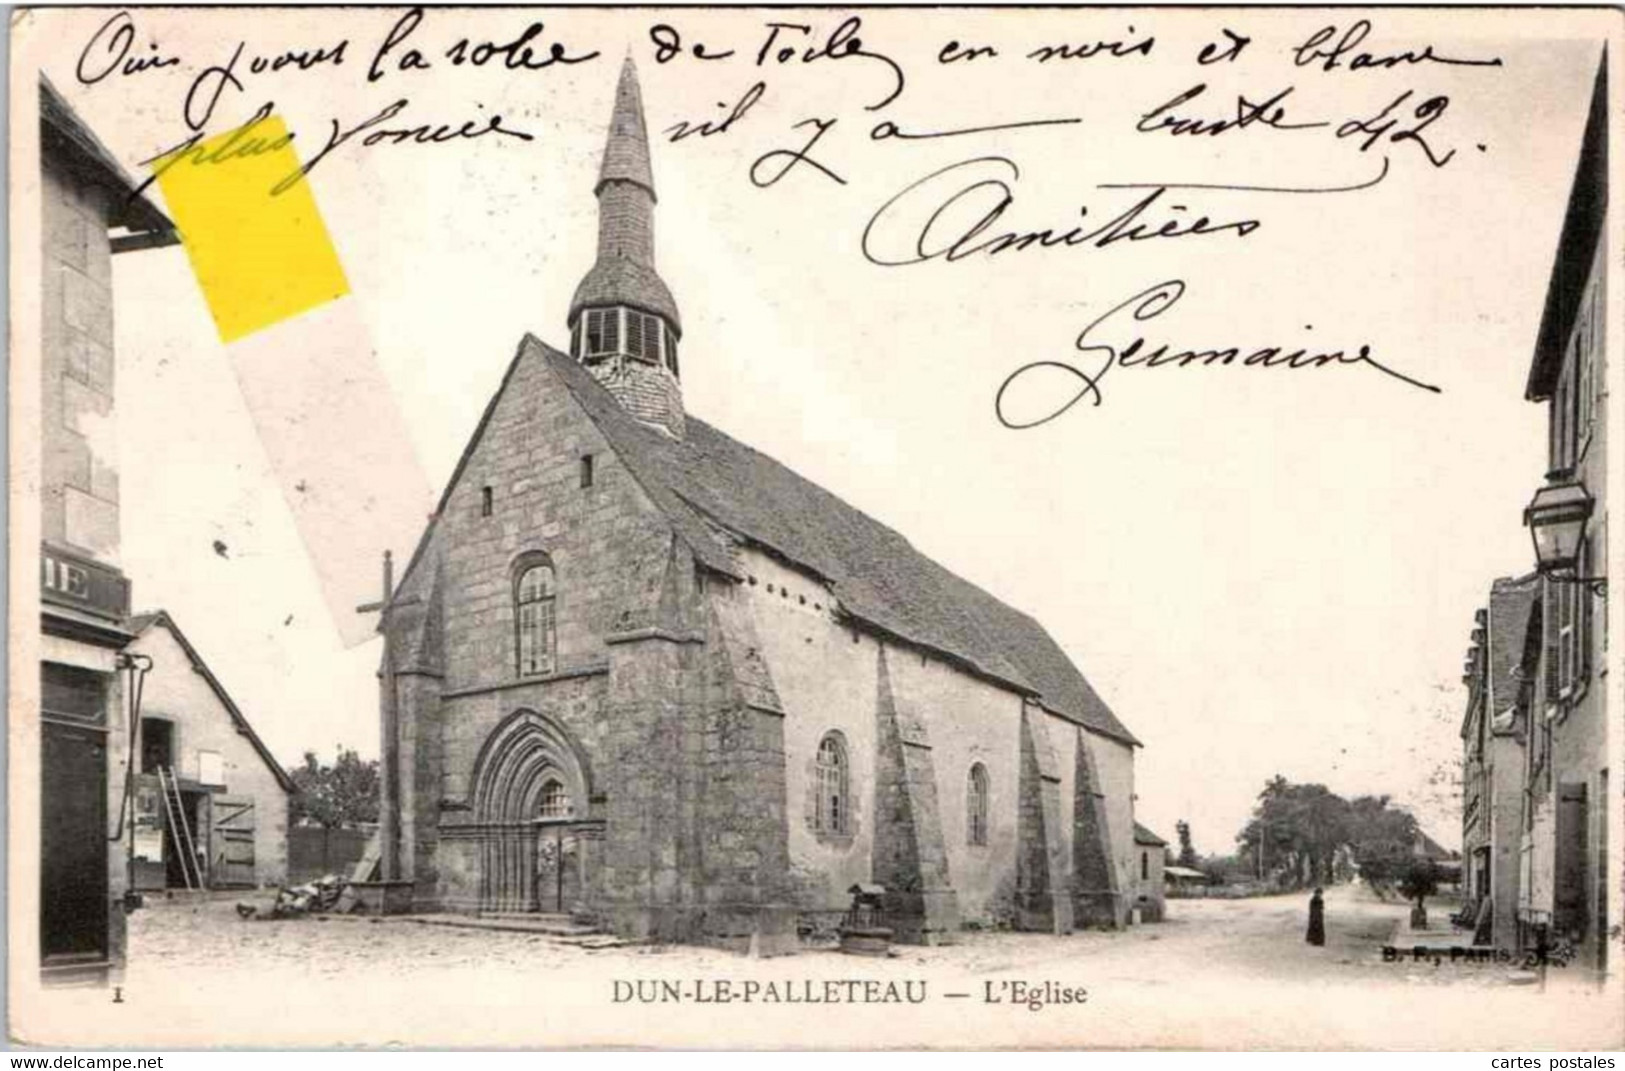 Oui pour la robe de Toile en noir et blanc
plus foncée il y a buste 42.
Amitiées
Germaine
IE
1
DUN-LE-PALLETEAU — L'Eglise
B. F., PARIS
www.delcampe.net
cartes postales